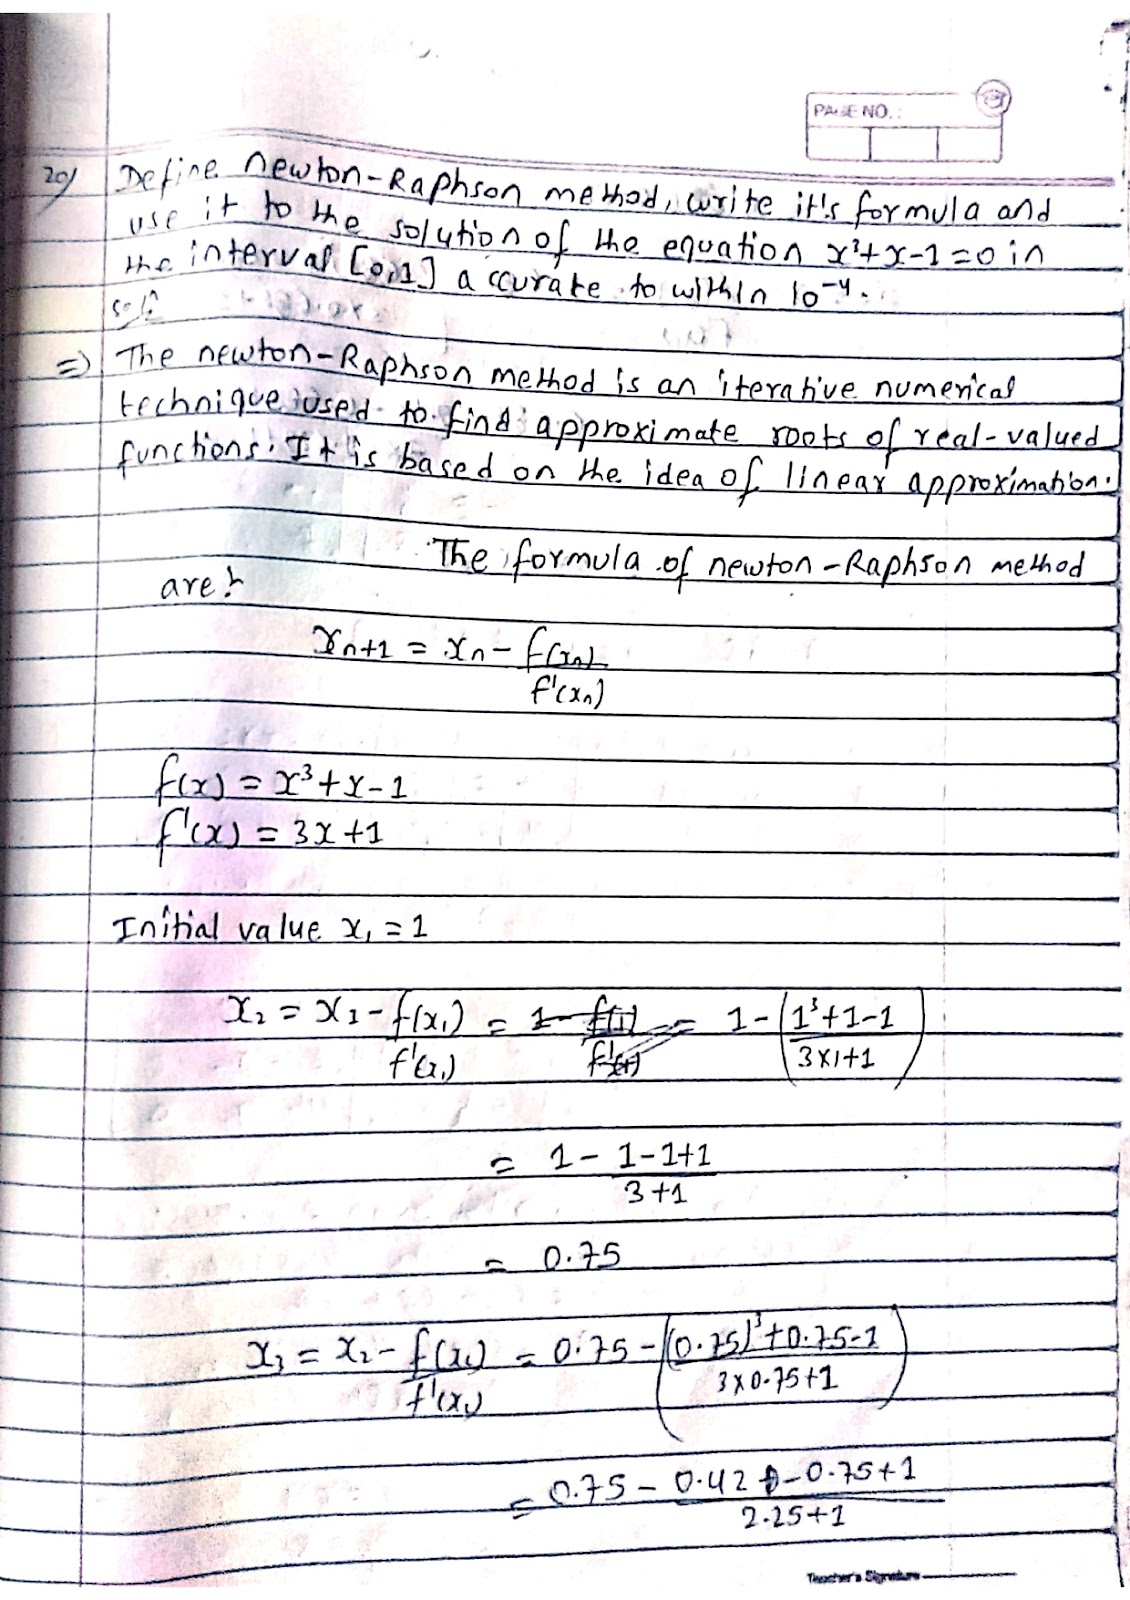 PAGE NO.:
20) Define newton-Raphson method, write it's formula and
use it to the solution of the equation x³+x-1=0 in
the interval [0,1] accurate to within 10⁻⁴.
solⁿ
=> The newton-Raphson method is an iterative numerical
technique used to find approximate roots of real-valued
functions. It is based on the idea of linear approximation.
The formula of newton-Raphson method
are:-
xₙ₊₁ = xₙ - f(xₙ)/f'(xₙ)
f(x) = x³+x-1
f'(x) = 3x+1
Initial value x₁ = 1
x₂ = x₁ - f(x₁)/f'(x₁) = 1 - f(1)/f'(1) = 1 - (1³+1-1/3×1+1)
= 1 - 1-1+1/3+1
= 0.75
x₃ = x₂ - f(x₂)/f'(x₂) = 0.75 - ((0.75)³+0.75-1/3×0.75+1)
= 0.75 - 0.42-0.75+1/2.25+1
Teacher's Signature